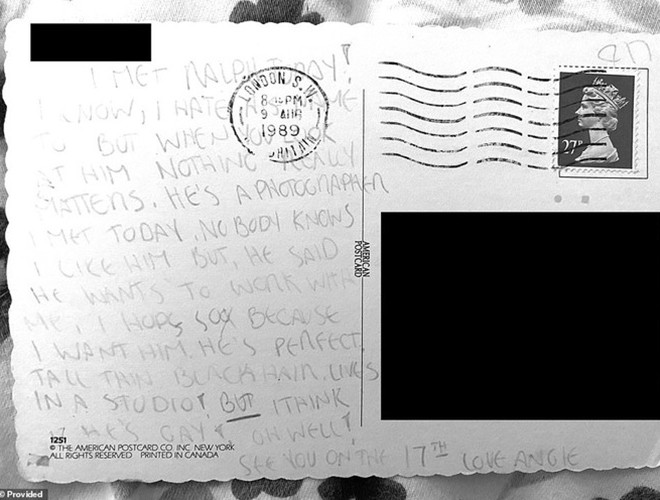 I MET RALPH TODAY!
I KNOW, I HATE NAME
TO BUT WHEN YOU LOOK
AT HIM NOTHING REALLY
MATTERS. HE'S A PHOTOGRAPHER
I MET TODAY. NOBODY KNOWS
I LIKE HIM BUT, HE SAID
HE WANTS TO WORK WITH
ME, I HOPE SOX BECAUSE
I WANT HIM. HE'S PERFECT,
TALL THIN BLACK HAIR. LIVES
IN A STUDIO! BUT I THINK
HE'S GAY! OH WELL!
SEE YOU ON THE 17TH LOVE ANGIE
1251
© THE AMERICAN POSTCARD CO. INC. NEW YORK
ALL RIGHTS RESERVED PRINTED IN CANADA
LONDON S.W.
PM
9 AUG
1989
27P
AMERICAN
POSTCARD
© Provided